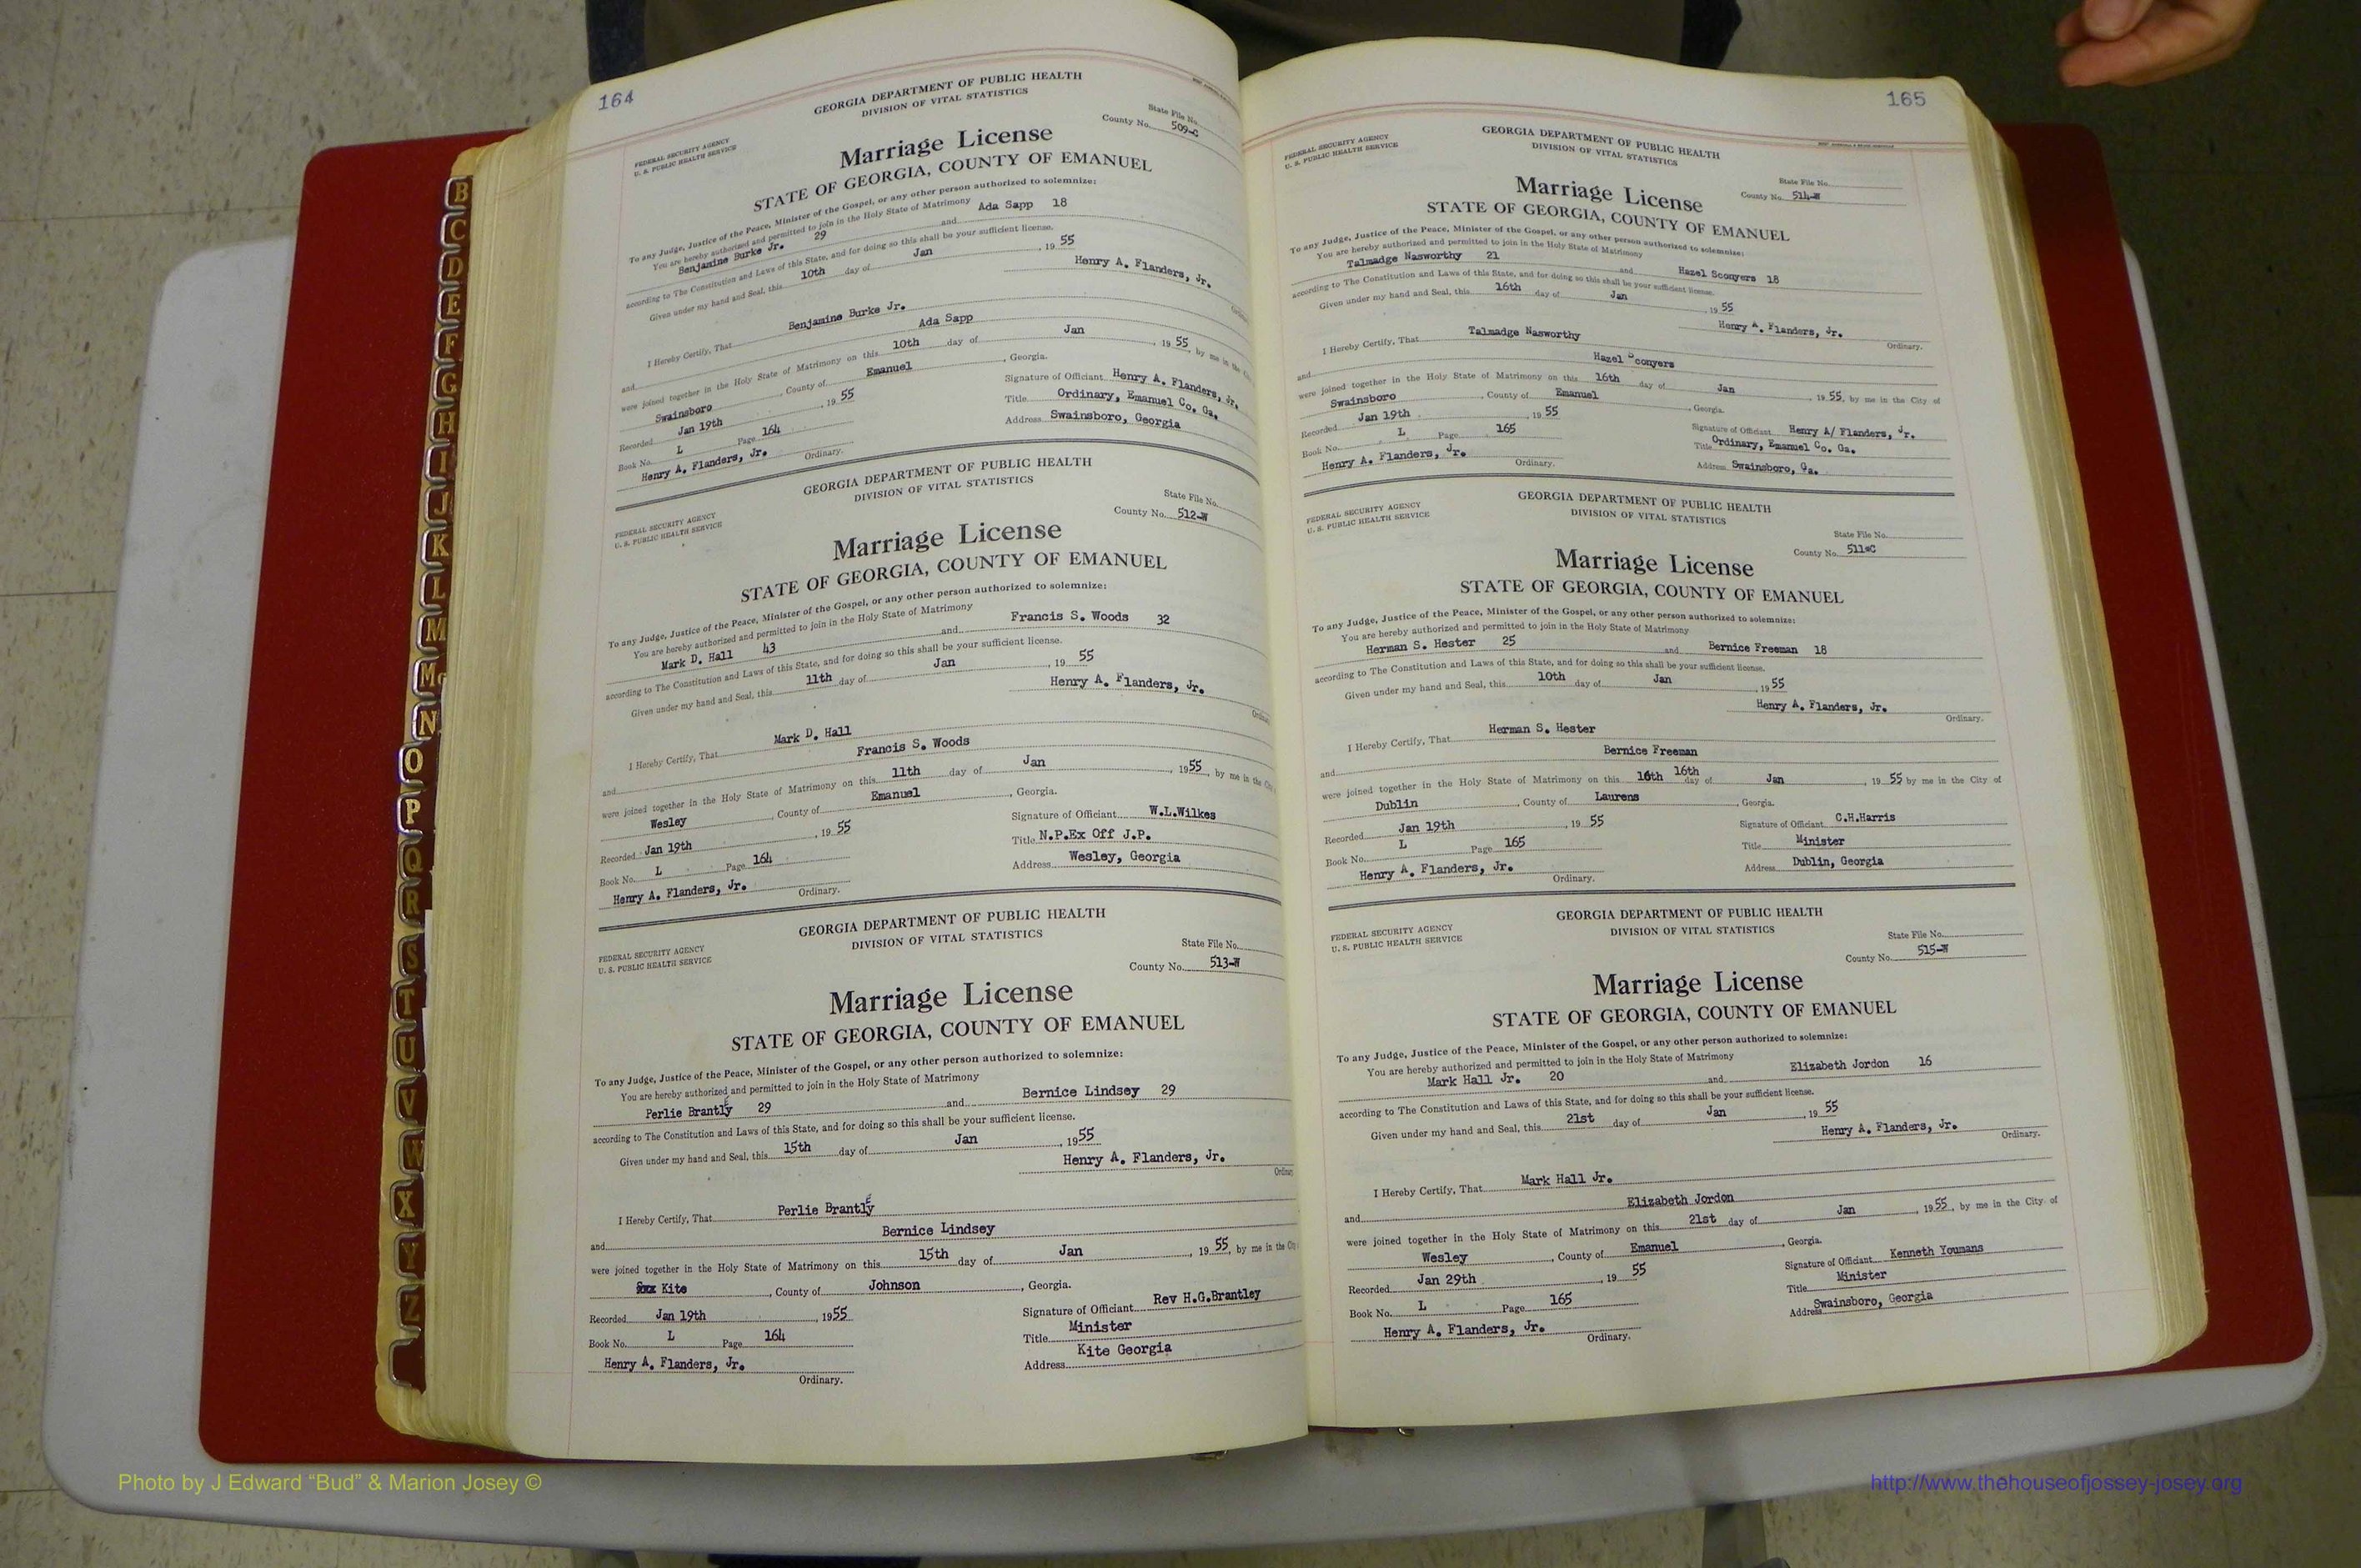 164
GEORGIA DEPARTMENT OF PUBLIC HEALTH
DIVISION OF VITAL STATISTICS
FEDERAL SECURITY AGENCY
U. S. PUBLIC HEALTH SERVICE
State File No.
County No. 509-C
Marriage License
STATE OF GEORGIA, COUNTY OF EMANUEL
To any Judge, Justice of the Peace, Minister of the Gospel, or any other person authorized to solemnize:
You are hereby authorized and permitted to join in the Holy State of Matrimony
Benjamine Burke Jr. 29 and Ada Sapp 18
according to The Constitution and Laws of this State, and for doing so this shall be your sufficient license.
Given under my hand and Seal, this 10th day of Jan, 19 55
Henry A. Flanders, Jr.
Ordinary
I Hereby Certify, That Benjamine Burke Jr.
and Ada Sapp
were joined together in the Holy State of Matrimony on this 10th day of Jan, 19 55, by me in the
Swainsboro, County of Emanuel, Georgia.
Recorded Jan 19th, 19 55
Book No. L Page 164
Henry A. Flanders, Jr. Ordinary.
Signature of Officiant Henry A. Flanders, Jr.
Title Ordinary, Emanuel Co. Ga.
Address Swainsboro, Georgia
GEORGIA DEPARTMENT OF PUBLIC HEALTH
DIVISION OF VITAL STATISTICS
FEDERAL SECURITY AGENCY
U. S. PUBLIC HEALTH SERVICE
State File No.
County No. 512-W
Marriage License
STATE OF GEORGIA, COUNTY OF EMANUEL
To any Judge, Justice of the Peace, Minister of the Gospel, or any other person authorized to solemnize:
You are hereby authorized and permitted to join in the Holy State of Matrimony
Mark D. Hall 43 and Francis S. Woods 32
according to The Constitution and Laws of this State, and for doing so this shall be your sufficient license.
Given under my hand and Seal, this 11th day of Jan, 19 55
Henry A. Flanders, Jr.
Ordinary
I Hereby Certify, That Mark D. Hall
and Francis S. Woods
were joined together in the Holy State of Matrimony on this 11th day of Jan, 19 55, by me in the City
Wesley, County of Emanuel, Georgia.
Recorded Jan 19th, 19 55
Book No. L Page 164
Henry A. Flanders, Jr. Ordinary.
Signature of Officiant W.L.Wilkes
Title N.P.Ex Off J.P.
Address Wesley, Georgia
GEORGIA DEPARTMENT OF PUBLIC HEALTH
DIVISION OF VITAL STATISTICS
FEDERAL SECURITY AGENCY
U. S. PUBLIC HEALTH SERVICE
State File No.
County No. 513-W
Marriage License
STATE OF GEORGIA, COUNTY OF EMANUEL
To any Judge, Justice of the Peace, Minister of the Gospel, or any other person authorized to solemnize:
You are hereby authorized and permitted to join in the Holy State of Matrimony
Perlie Brantley 29 and Bernice Lindsey 29
according to The Constitution and Laws of this State, and for doing so this shall be your sufficient license.
Given under my hand and Seal, this 15th day of Jan, 19 55
Henry A. Flanders, Jr.
Ordinary
I Hereby Certify, That Perlie Brantley
and Bernice Lindsey
were joined together in the Holy State of Matrimony on this 15th day of Jan, 19 55, by me in the City
Kite, County of Johnson, Georgia.
Recorded Jan 19th, 19 55
Book No. L Page 164
Henry A. Flanders, Jr.
Ordinary.
Signature of Officiant Rev H.G.Brantley
Title Minister
Address Kite Georgia
165
GEORGIA DEPARTMENT OF PUBLIC HEALTH
DIVISION OF VITAL STATISTICS
FEDERAL SECURITY AGENCY
U. S. PUBLIC HEALTH SERVICE
State File No.
County No. 514-W
Marriage License
STATE OF GEORGIA, COUNTY OF EMANUEL
To any Judge, Justice of the Peace, Minister of the Gospel, or any other person authorized to solemnize:
You are hereby authorized and permitted to join in the Holy State of Matrimony
Talmadge Nasworthy 21 and Hazel Sconyers 18
according to The Constitution and Laws of this State, and for doing so this shall be your sufficient license.
Given under my hand and Seal, this 16th day of Jan, 19 55
Henry A. Flanders, Jr.
Ordinary.
I Hereby Certify, That Talmadge Nasworthy
and Hazel Sconyers
were joined together in the Holy State of Matrimony on this 16th day of Jan, 19 55, by me in the City of
Swainsboro, County of Emanuel, Georgia.
Recorded Jan 19th, 19 55
Book No. L Page 165
Henry A. Flanders, Jr. Ordinary.
Signature of Officiant Henry A/ Flanders, Jr.
Title Ordinary, Emanuel Co. Ga.
Address Swainsboro, Ga.
GEORGIA DEPARTMENT OF PUBLIC HEALTH
DIVISION OF VITAL STATISTICS
FEDERAL SECURITY AGENCY
U. S. PUBLIC HEALTH SERVICE
State File No.
County No. 511=C
Marriage License
STATE OF GEORGIA, COUNTY OF EMANUEL
To any Judge, Justice of the Peace, Minister of the Gospel, or any other person authorized to solemnize:
You are hereby authorized and permitted to join in the Holy State of Matrimony
Herman S. Hester 25 and Bernice Freeman 18
according to The Constitution and Laws of this State, and for doing so this shall be your sufficient license.
Given under my hand and Seal, this 10th day of Jan, 19 55
Henry A. Flanders, Jr.
Ordinary.
I Hereby Certify, That Herman S. Hester
and Bernice Freeman
were joined together in the Holy State of Matrimony on this 16th 16th day of Jan, 19 55 by me in the City of
Dublin, County of Laurens, Georgia.
Recorded Jan 19th, 19 55
Book No. L Page 165
Henry A. Flanders, Jr.
Ordinary.
Signature of Officiant C.H.Harris
Title Minister
Address Dublin, Georgia
GEORGIA DEPARTMENT OF PUBLIC HEALTH
DIVISION OF VITAL STATISTICS
FEDERAL SECURITY AGENCY
U. S. PUBLIC HEALTH SERVICE
State File No.
County No. 515-W
Marriage License
STATE OF GEORGIA, COUNTY OF EMANUEL
To any Judge, Justice of the Peace, Minister of the Gospel, or any other person authorized to solemnize:
You are hereby authorized and permitted to join in the Holy State of Matrimony
Mark Hall Jr. 20 and Elizabeth Jordon 16
according to The Constitution and Laws of this State, and for doing so this shall be your sufficient license.
Given under my hand and Seal, this 21st day of Jan, 19 55
Henry A. Flanders, Jr.
Ordinary.
I Hereby Certify, That Mark Hall Jr.
and Elizabeth Jordon
were joined together in the Holy State of Matrimony on this 21st day of Jan, 19 55, by me in the City of
Wesley, County of Emanuel, Georgia.
Recorded Jan 29th, 19 55
Book No. L Page 165
Henry A. Flanders, Jr.
Ordinary.
Signature of Officiant Kenneth Youmans
Title Minister
Address Swainsboro, Georgia
B
C
D
E
F
G
H
I
J
K
L
M
Mc
N
O
P
Q
R
S
T
U
V
W
X
Y
Z
Photo by J Edward “Bud” & Marion Josey ©
http://www.thehouseofjossey-josey.org